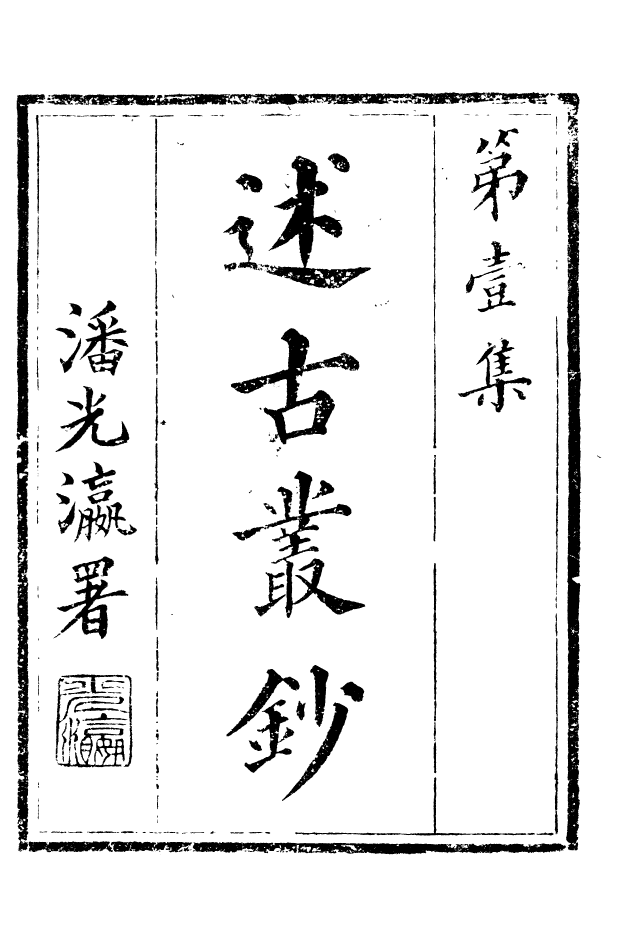 第壹集
述古叢鈔
潘光瀛署